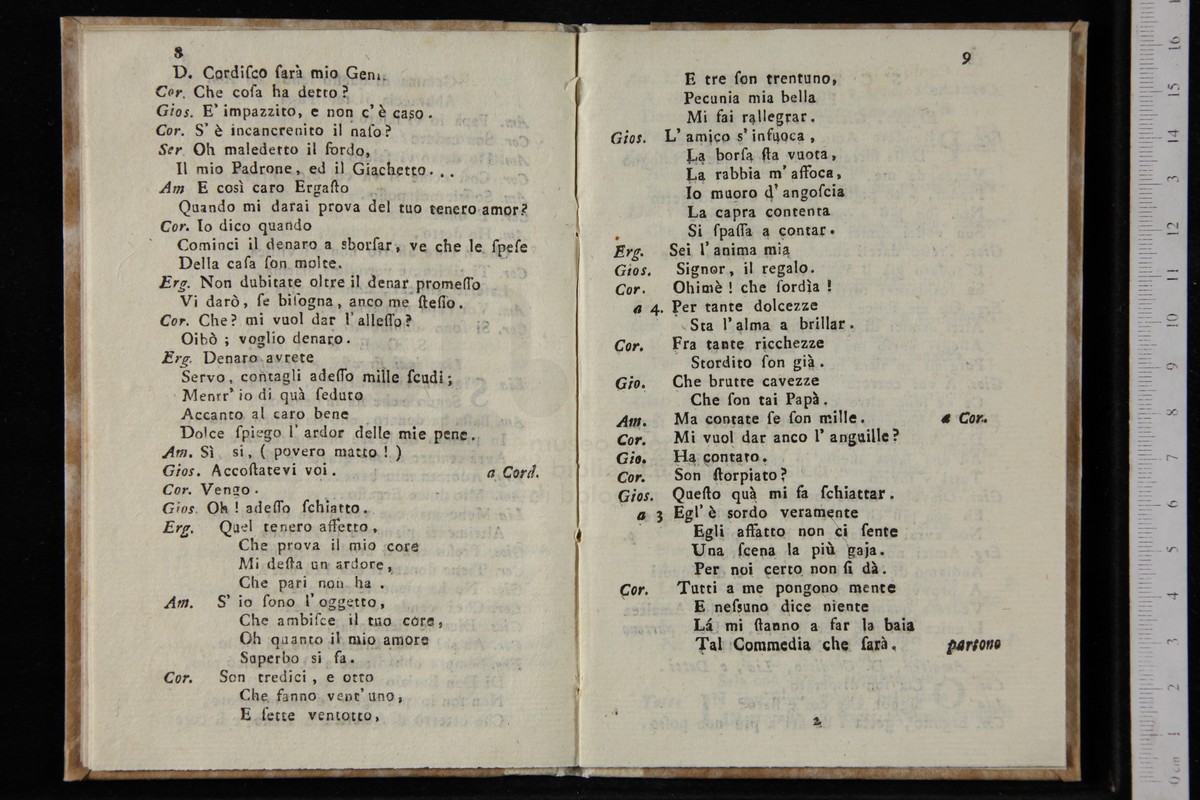 8
D. Cordiſco ſarà mio Gen
Cor. Che coſa ha detto?
Gios. E' impazzito, e non c' è caso.
Cor. S' è incancrenito il naſo?
Ser Oh maledetto il ſordo,
Il mio Padrone, ed il Giachetto...
Am E così caro Ergaſto
Quando mi darai prova del tuo tenero amor?
Cor. Io dico quando
Cominci il denaro a sborſar, ve che le ſpeſe
Della caſa ſon molte.
Erg. Non dubitate oltre il denar promeſſo
Vi darò, ſe biſogna, anco me ſteſſo.
Cor. Che? mi vuol dar l' alleſſo?
Oibò; voglio denaro.
Erg. Denaro avrete
Servo, contagli adeſſo mille ſcudi;
Mentr' io di quà ſeduto
Accanto al caro bene
Dolce ſpiego l' ardor delle mie pene.
Am. Sì si, ( povero matto! )
Gios. Accoſtatevi voi. a Cord.
Cor. Vengo.
Gios Oh! adeſſo ſchiatto.
Erg. Quel tenero affetto,
Che prova il mio core
Mi deſta un ardore,
Che pari non ha.
Am. S' io ſono l' oggetto,
Che ambiſce il tuo core,
Oh quanto il mio amore
Superbo si fa.
Cor. Son tredici, e otto
Che fanno vent' uno,
E ſette ventotto,
9
E tre ſon trentuno,
Pecunia mia bella
Mi fai rallegrar.
Gios. L' amico s' infuoca,
La borſa ſta vuota,
La rabbia m' affoca,
Io muoro d' angoſcia
La capra contenta
Si ſpaſſa a contar.
Erg. Sei l' anima mia
Gios. Signor, il regalo.
Cor. Ohimè! che ſordìa!
a 4. Per tante dolcezze
Sta l' alma a brillar.
Cor. Fra tante ricchezze
Stordito ſon già.
Gio. Che brutte cavezze
Che ſon tai Papà.
Am. Ma contate ſe ſon mille. a Cor.
Cor. Mi vuol dar anco l' anguille?
Gio. Ha contato.
Cor. Son ſtorpiato?
Gios. Queſto quà mi fa ſchiattar.
a 3 Egl' è sordo veramente
Egli affatto non ci ſente
Una ſcena la più gaja.
Per noi certo non ſi dà.
Cor. Tutti a me pongono mente
E neſsuno dice niente
Lá mi ſtanno a far la baia
Tal Commedia che ſarà. partono
2